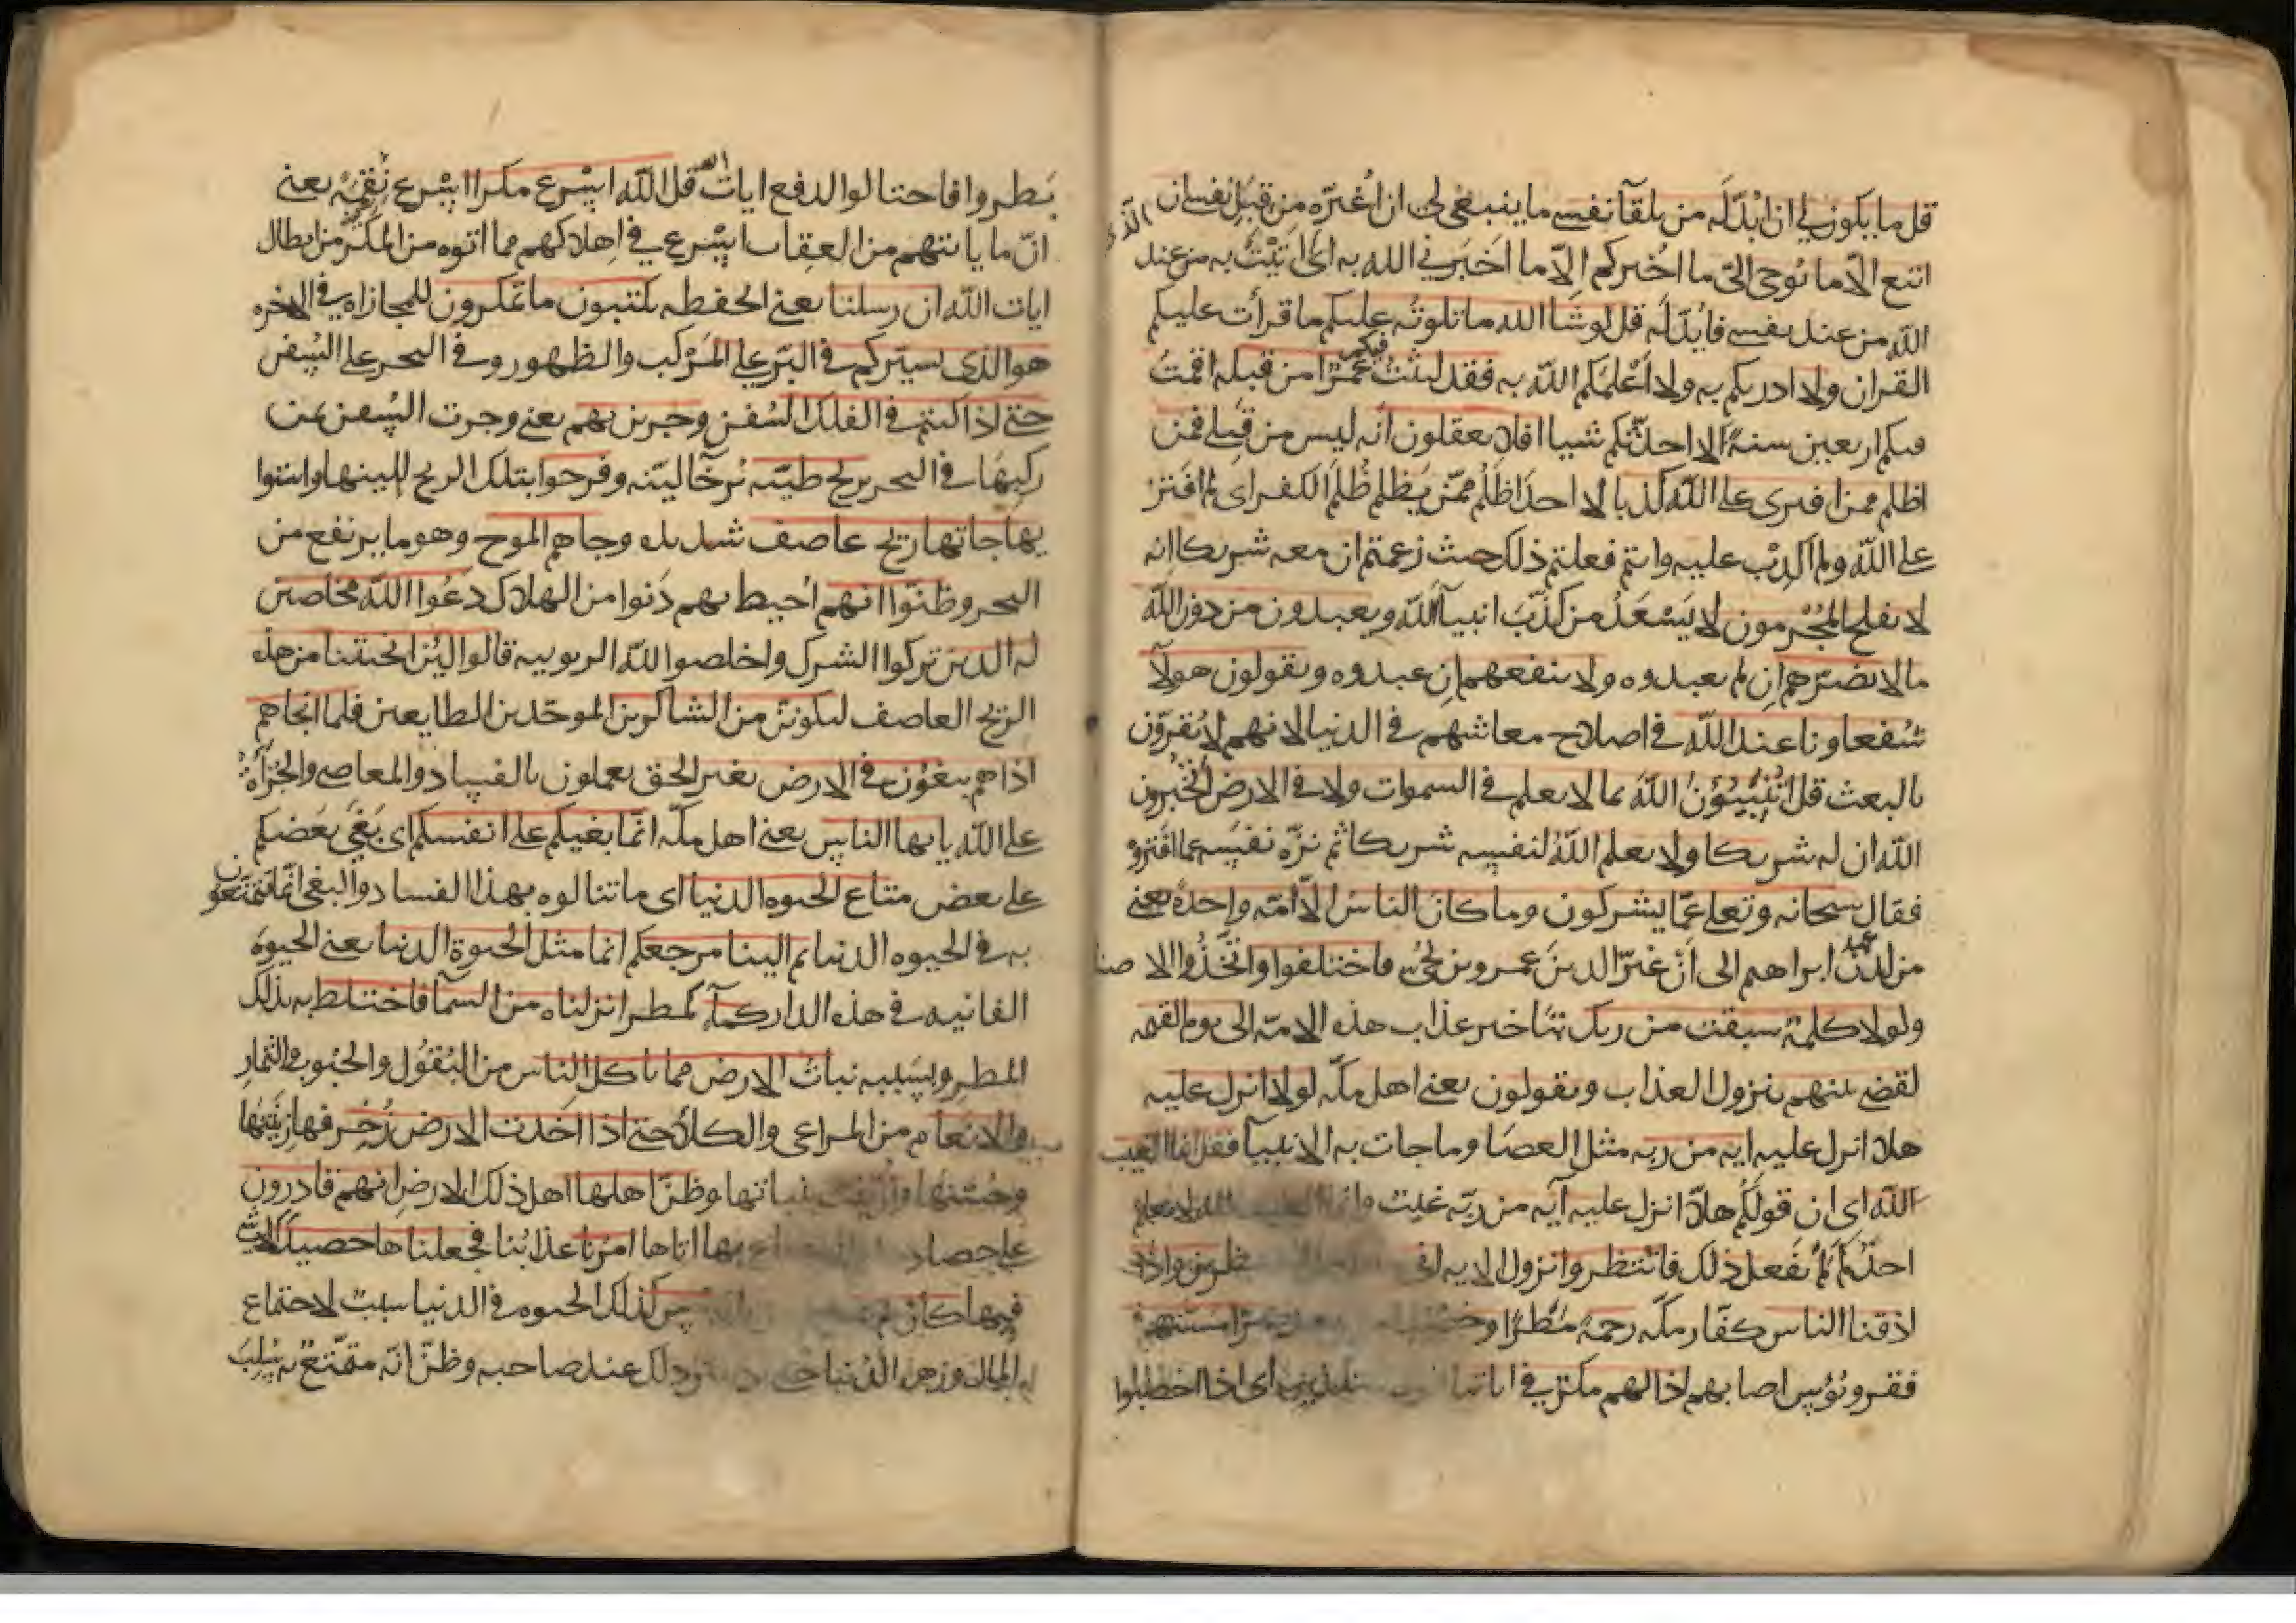 قل ما يكون لي ان ابدّله من تلقآ نفسي ما ينبغي لي ان اُغيّره من قِبَل نفسي ان الذى
اتبع الّا ما يوحى اليّ ما اُخبركم اِلّا ما اَخبَرني الله به اى اَتَيْتُ به من عند
الله من عند نفسي فابدّله قل لو شا الله ما تلوته عليكم ما قرأت عليكم
القران ولا ادريكم به ولا اَعْلمَكم الله به فقد لبثتُ فيكم عُمُرًا من قبله اقمتُ
فيكم اربعين سنةً لا احدّثكم شيا افلا تعقلون انّه ليس من قِبَلي فمن
اظلم ممن افترى على الله كذبا لا احدَ اَظلَمُ ممّن يَظلم ظُلمَ الكفر اى لم افتر
على الله ولم اكذِبْ عليه وانتم فعلتم ذلك حيث زعمتم ان معه شريكا انه
لا يفلح المُجْرمون لا يَسْعَدُ من كذّبَ انبيآ الله ويعبدون من دون الله
ما لا يضرّهم اِن لم يعبدوه ولا ينفعهم اِن عبدوه ويقولون هولآ
شفعاونا عند الله في اصلاح معاشهم في الدنيا لانهم لا يُقرّون
بالبعث قل اَتُنَبّئُونَ الله بما لا يعلم في السموات ولا في الارض اتُخبرون
الله ان له شريكا ولا يعلم اللهُ لنفسِه شريكا ثم نزّه نفسَه عما افتروه
فقال سبحانه وتعلى عمّا يشركون وما كان الناسُ الّا امّه واحدة يعني
من لدن عهد ابراهيم الى اَنْ غيّر الدينَ عمرو بن لحُي فاختلفوا واتّخذُوا الاصنا
ولولا كلمة سبقت من ربك بتاخير عذاب هذه الامّه الى يوم القيمه
لقضي بينهم بنزول العذاب ويقولون يعني اهل مكّه لولا انزل عليه
هلّا انزل عليه ايه من ربه مثل العصَا وما جات به الانبيآ فقل انما الغيب
الله اى ان قولَكُم هلّا انزل عليه آيه من ربّه غيبٌ وانما الغيب لله لا يعلم
احدٌ لِمَ لَم نفعل ذلك فانتظروا نزول الايه
اذقنا الناس كفّار مكّه رحمة مَطرًا
فقر وبُؤس اصابهم اذا لهم مكرٌ في اياتنا
بَطروا فاحتالوا لدفع ايات الله قل الله اسْرع مكرا اسْرع نِقمَة يعني
انّ ما ياتيهم من العِقاب اسْرع في اِهلاكهم مما اتوه من المَكْر من ابطال
ايات الله ان رسلنا يعني الحفظه يكتبون ما تمكرون للمجازاه في الاخره
هو الذى يسيّركم في البرّ على المَرْكب والظهور وفي البحر على السُفن
حتى اذا كنتم في الفلك السُفن وجرين بهم يعني وجرت السُفن بمن
ركبها في البحر بريح طيّبه رُخآ ليّنه وفرحوا بتلك الريح للينها واستوا
يها جاتها ريح عاصف شديده وجاهم الموج وهو ما يرتفع من
البحر وظنّوا انهم اُحيط بهم دَنوا من الهلاك دعَوا الله مخلصين
له الدين تركوا الشرك واخلصوا لله الربوبيه قالوا لئن انجيتنا من هذه
الريح العاصف لنكوننّ من الشاكرين الموحّدين الطايعين فلما انجاهم
اذا هم يبغُون في الارض بغير الحق يعملون بالفساد والمعاصي والجُرْأة
على الله يا يها الناس يعني اهل مكّه انّما بغيكم على انفسكم اى بَغْي بعضكم
على بعض متاع الحيوه الدنيا اى ما تنالوه بهذا الفساد والبغي انّما تتمتّعون
به في الحيوه الدنيا ثم الينا مرجعكم انما مثل الحيوة الدنيا يعني الحيوة
الفانيه في هذه الدار كمآ كمطر انزلناه من السمآ فاختلط به بذلك
المطر وبسَببه نباتُ الارض مما ياكل الناس من البُقُول والحُبوب والثمار
والانعام من المراعي والكلأ حتى اذا اخذت الارض زُخرفها زينَتها
وحُسْنها وازّيّنت بنباتها وظنّ اهلها اهل ذلك الارض انهم قادرون
على حصاد بها اتاها امرُنا عذابُنا فجعلناها حصيدًا
فيها كان لم كذلك الحيوه في الدنيا سببٌ لاجتماع
المال وزهرة الدُنيا ذلك عند صاحبه وظنّ انّه مُمَتّعٌ به سُلِبَ